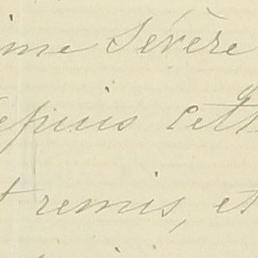 ime Sévère
depuis cett
t remis, et